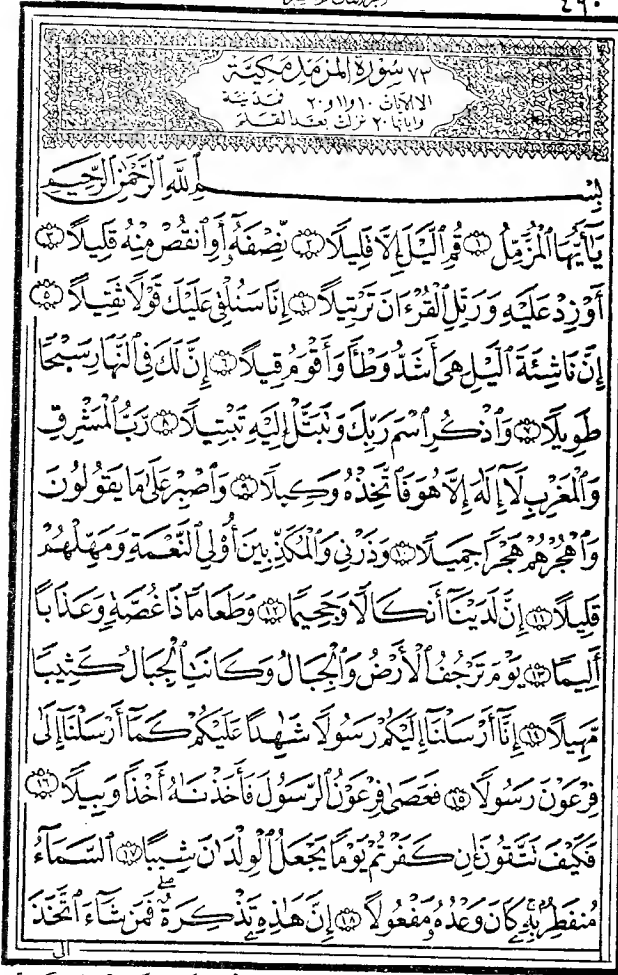 ٤٩٠
٧٣ سورة المزمل مكية
الا الآيات ١٠ و ١١ و ٢٠ فمدنية
وآياتها ٢٠ نزلت بعد القلم
بِسْمِ ٱللَّهِ ٱلرَّحْمَٰنِ ٱلرَّحِيمِ
يَٰٓأَيُّهَا ٱلْمُزَّمِّلُ ١ قُمِ ٱلَّيْلَ إِلَّا قَلِيلًا ٢ نِّصْفَهُۥٓ أَوِ ٱنقُصْ مِنْهُ قَلِيلًا ٣
أَوْ زِدْ عَلَيْهِ وَرَتِّلِ ٱلْقُرْءَانَ تَرْتِيلًا ٤ إِنَّا سَنُلْقِى عَلَيْكَ قَوْلًا ثَقِيلًا ٥
إِنَّ نَاشِئَةَ ٱلَّيْلِ هِىَ أَشَدُّ وَطْـًٔا وَأَقْوَمُ قِيلًا ٦ إِنَّ لَكَ فِى ٱلنَّهَارِ سَبْحًا
طَوِيلًا ٧ وَٱذْكُرِ ٱسْمَ رَبِّكَ وَتَبَتَّلْ إِلَيْهِ تَبْتِيلًا ٨ رَّبُّ ٱلْمَشْرِقِ
وَٱلْمَغْرِبِ لَآ إِلَٰهَ إِلَّا هُوَ فَٱتَّخِذْهُ وَكِيلًا ٩ وَٱصْبِرْ عَلَىٰ مَا يَقُولُونَ
وَٱهْجُرْهُمْ هَجْرًا جَمِيلًا ١٠ وَذَرْنِى وَٱلْمُكَذِّبِينَ أُو۟لِى ٱلنَّعْمَةِ وَمَهِّلْهُمْ
قَلِيلًا ١١ إِنَّ لَدَيْنَآ أَنكَالًا وَجَحِيمًا ١٢ وَطَعَامًا ذَا غُصَّةٍ وَعَذَابًا
أَلِيمًا ١٣ يَوْمَ تَرْجُفُ ٱلْأَرْضُ وَٱلْجِبَالُ وَكَانَتِ ٱلْجِبَالُ كَثِيبًا
مَّهِيلًا ١٤ إِنَّآ أَرْسَلْنَآ إِلَيْكُمْ رَسُولًا شَٰهِدًا عَلَيْكُمْ كَمَآ أَرْسَلْنَآ إِلَىٰ
فِرْعَوْنَ رَسُولًا ١٥ فَعَصَىٰ فِرْعَوْنُ ٱلرَّسُولَ فَأَخَذْنَٰهُ أَخْذًا وَبِيلًا ١٦
فَكَيْفَ تَتَّقُونَ إِن كَفَرْتُمْ يَوْمًا يَجْعَلُ ٱلْوِلْدَٰنَ شِيبًا ١٧ ٱلسَّمَآءُ
مُنفَطِرٌۢ بِهِۦ كَانَ وَعْدُهُۥ مَفْعُولًا ١٨ إِنَّ هَٰذِهِۦ تَذْكِرَةٌ فَمَن شَآءَ ٱتَّخَذَ